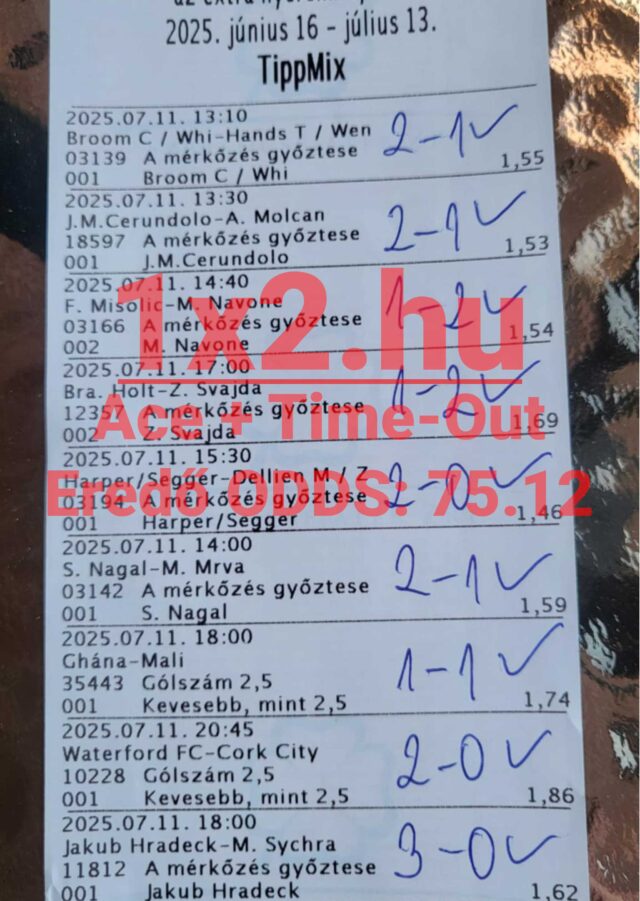 2025. június 16 - július 13.
TippMix
2025.07.11. 13:10
Broom C / Whi-Hands T / Wen
2-1✓
03139 A mérkőzés győztese
001 Broom C / Whi 1,55
2025.07.11. 13:30
J.M.Cerundolo-A. Molcan
2-1✓
18597 A mérkőzés győztese
001 J.M.Cerundolo 1,53
2025.07.11. 14:40
F. Misolic-M. Navone
1-2✓
03166 A mérkőzés győztese
002 M. Navone 1,54
1x2.hu
2025.07.11. 17:00
Bra. Holt-Z. Svajda
1-2✓
12357 A mérkőzés győztese
002 Z. Svajda 1,69
Ace + Time-Out
2025.07.11. 15:30
Harper/Segger-Dellien M / Z
2-0✓
03194 A mérkőzés győztese
001 Harper/Segger 1,46
Eredő ODDS: 75.12
2025.07.11. 14:00
S. Nagal-M. Mrva
2-1✓
03142 A mérkőzés győztese
001 S. Nagal 1,59
2025.07.11. 18:00
Ghána-Mali
1-1✓
35443 Gólszám 2,5
001 Kevesebb, mint 2,5 1,74
2025.07.11. 20:45
Waterford FC-Cork City
2-0✓
10228 Gólszám 2,5
001 Kevesebb, mint 2,5 1,86
2025.07.11. 18:00
Jakub Hradeck-M. Sychra
3-0✓
11812 A mérkőzés győztese
001 Jakub Hradeck 1,62